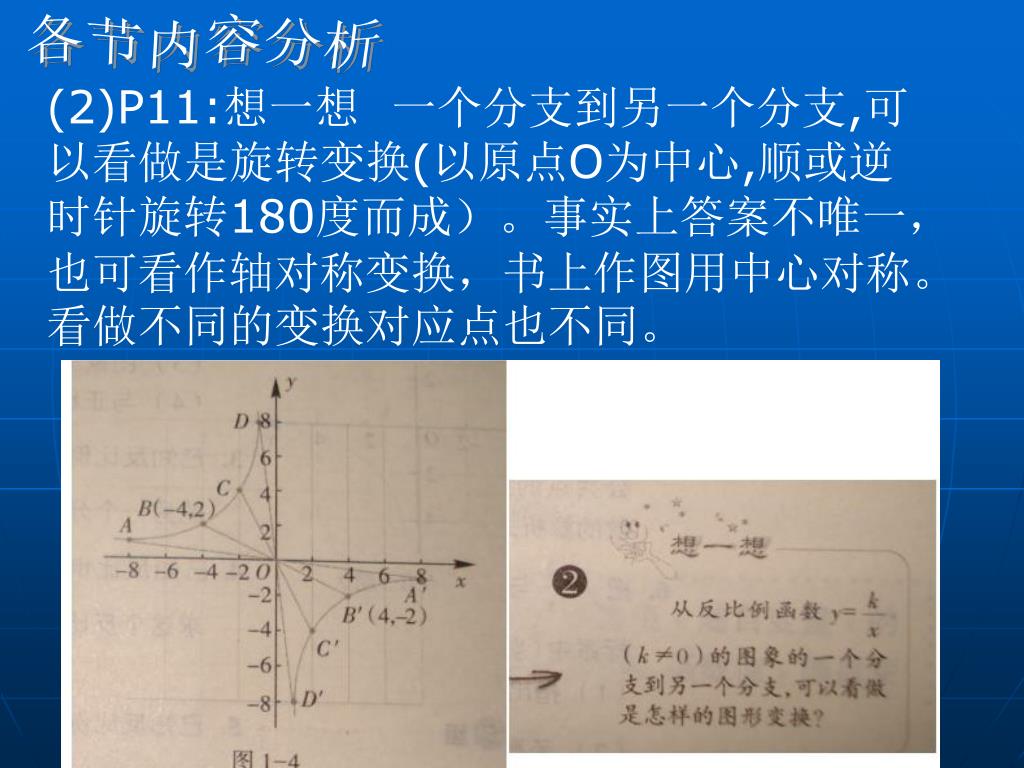 各节内容分析
(2)P11:想一想 一个分支到另一个分支,可
以看做是旋转变换(以原点O为中心,顺或逆
时针旋转180度而成）。事实上答案不唯一，
也可看作轴对称变换，书上作图用中心对称。
看做不同的变换对应点也不同。
y
D 8
6
C 4
B(-4,2)
A 2
-8 -6 -4 -2 O 2 4 6 8 x
-2 A′
B′(4,-2)
-4 C′
-6
-8 D′
图1-4
想一想
2
从反比例函数 y=k/x
(k≠0)的图象的一个分
支到另一个分支,可以看做
是怎样的图形变换?